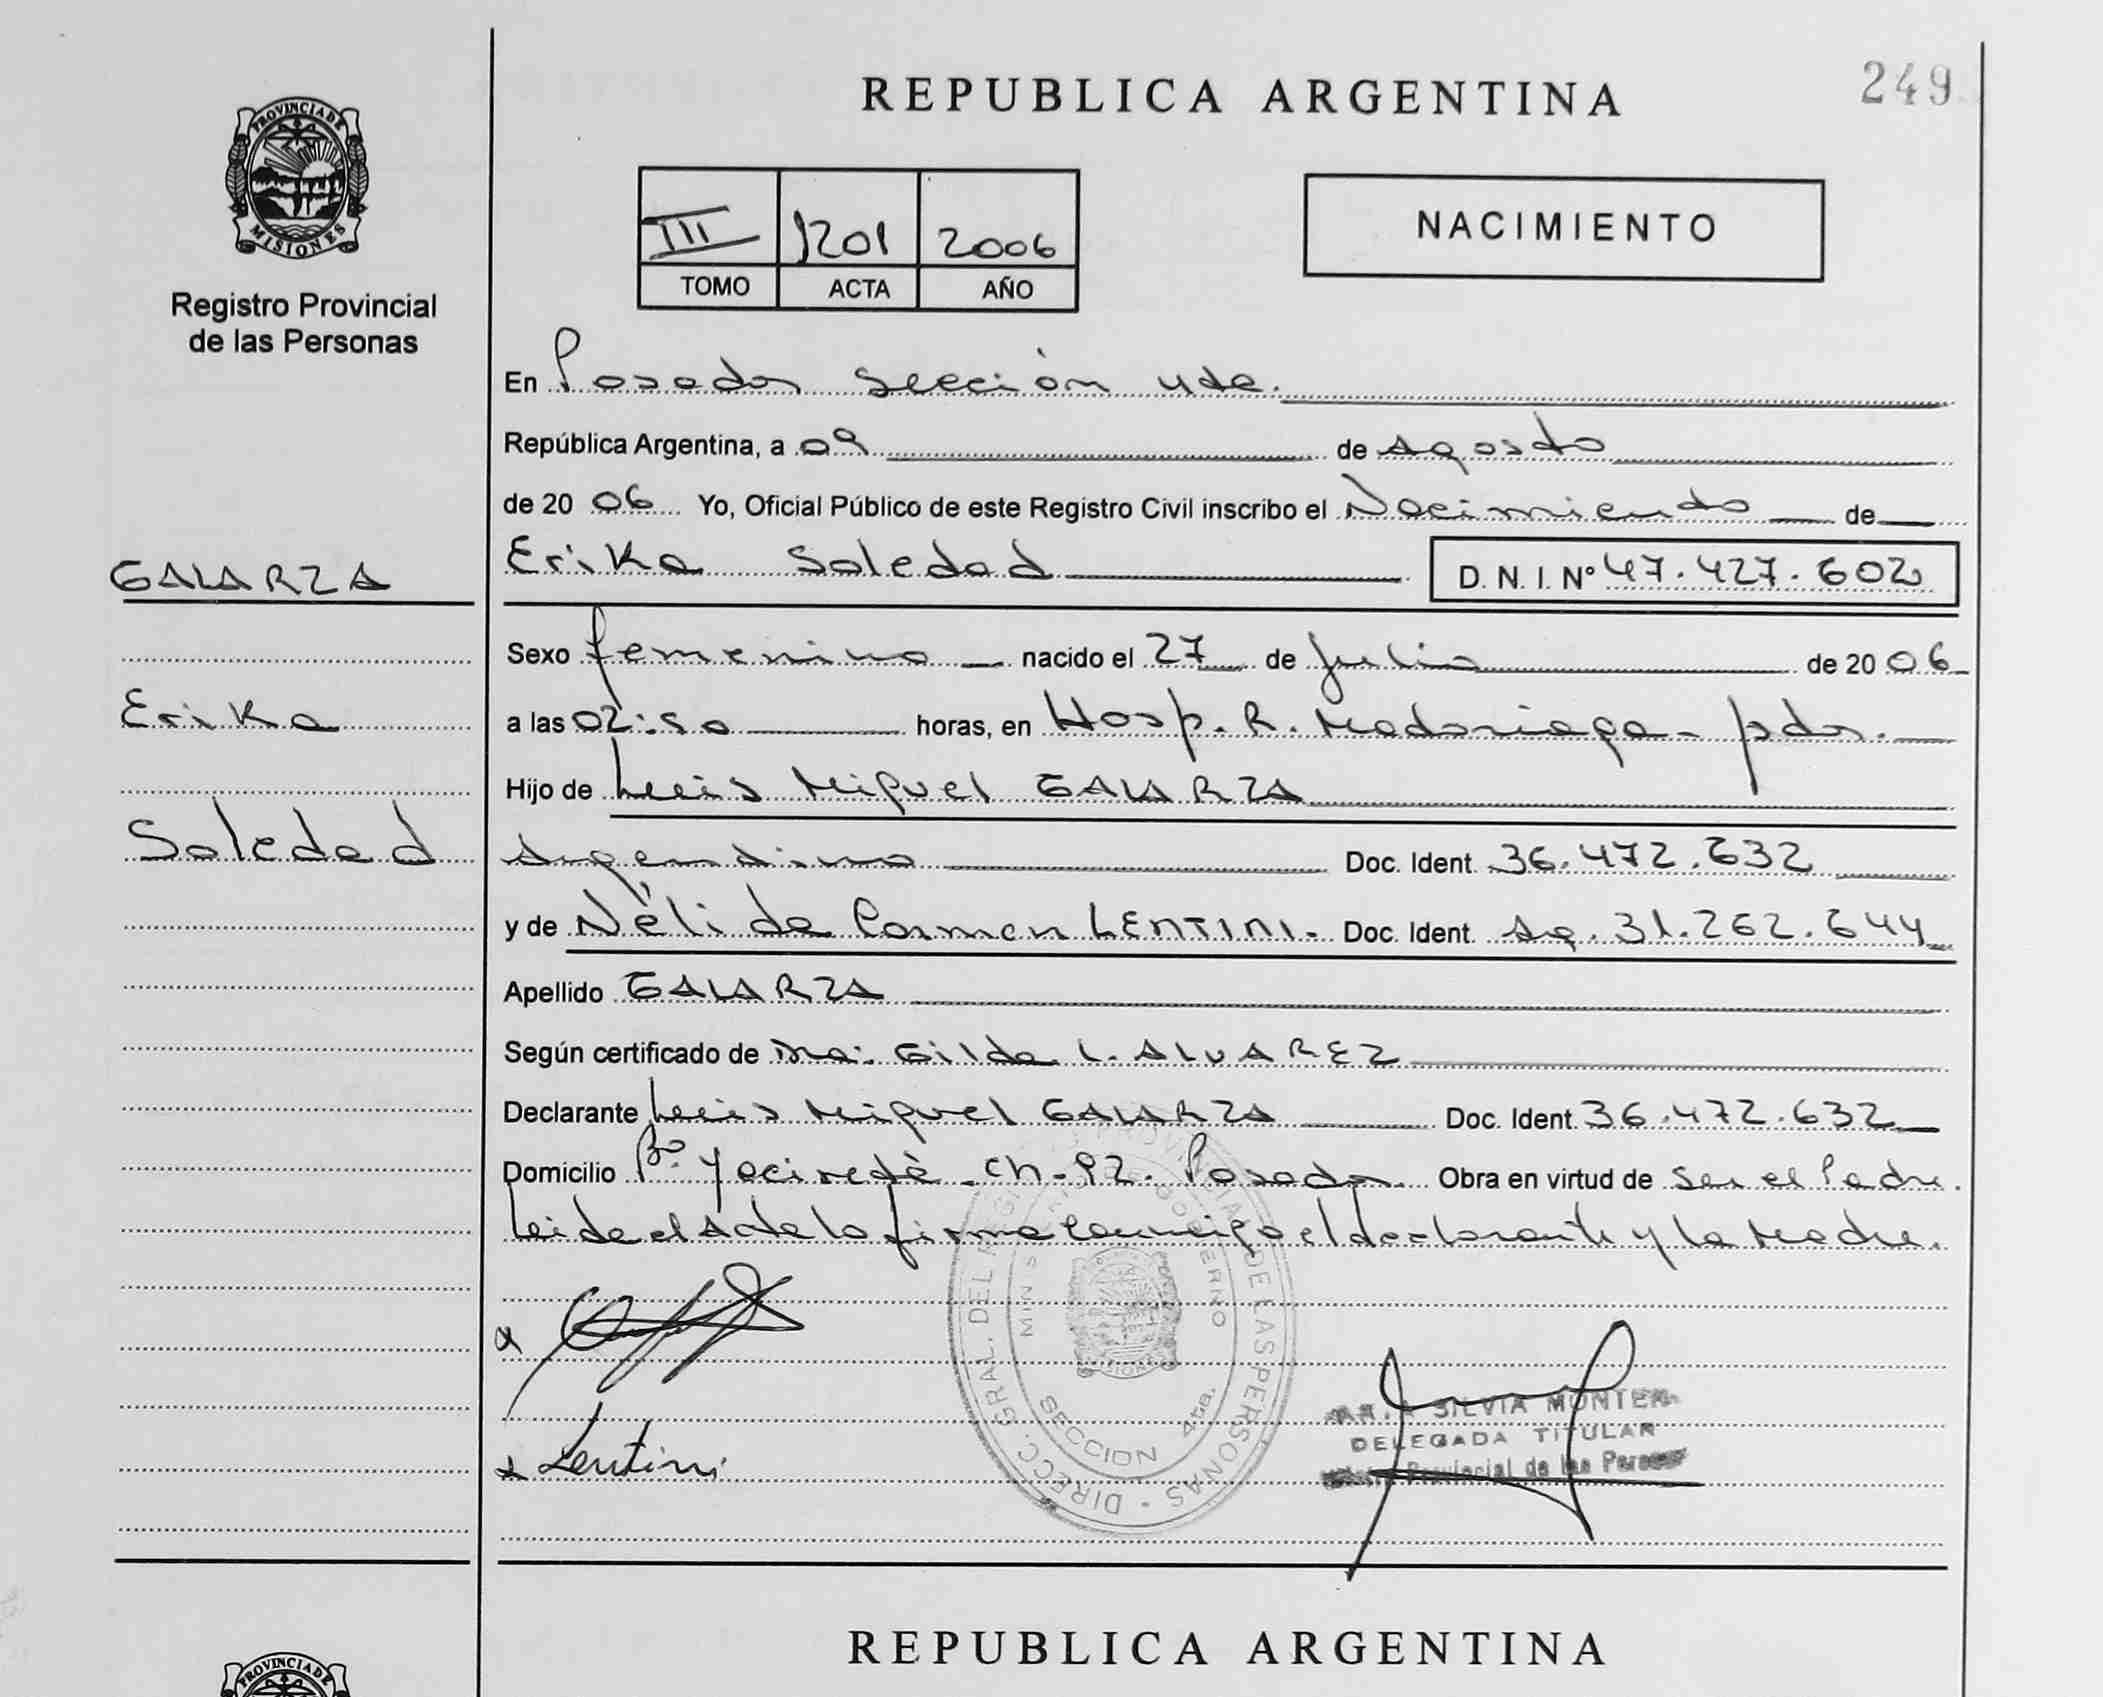 REPUBLICA ARGENTINA
249
PROVINCIA DE
MISIONES
Registro Provincial
de las Personas
III 1201 2006
TOMO ACTA AÑO
NACIMIENTO
En Posadas Sección 4ta.
República Argentina, a 09 de Agosto
de 20 06 Yo, Oficial Público de este Registro Civil inscribo el Nacimiento de
GALARZA
Erika Soledad D. N. I. Nº 47.427.602
Sexo femenino nacido el 27 de julio de 20 06
Erika
a las 02:50 horas, en Hosp. R. Madariaga - pdas.
Hijo de Luis Miguel GALARZA
Soledad
Argentino Doc. Ident. 36.472.632
y de Nélida Carmen LENTINI. Doc. Ident. Ag. 31.262.644
Apellido GALARZA
Según certificado de Dra: Gilda L. ALVAREZ
Declarante Luis Miguel GALARZA Doc. Ident. 36.472.632
Domicilio Bº. Yaciretá - Ch. 92. Posadas. Obra en virtud de ser el Padre.
Leida el Acta la firma conmigo el declarante y la Madre.
DIRECC. GRAL. DEL REG. PROVINCIAL DE LAS PERSONAS
MINISTERIO DE GOBIERNO
MISIONES
SECCION 4ta.
Lentini
SILVIA MONTE
DELEGADA TITULAR
Provincial de las Personas
REPUBLICA ARGENTINA
PROVINCIA DE